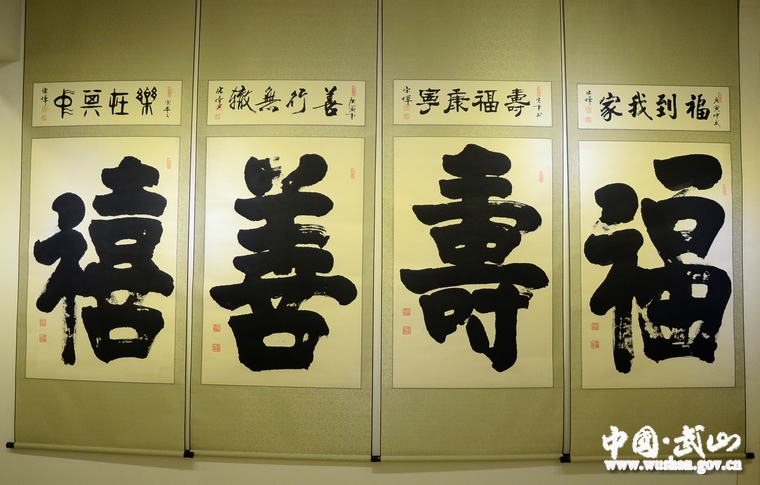 福到我家
福
壽福康寧
壽
善行無轍
善
樂在其中
禧
中国·武山
www.wushan.gov.cn